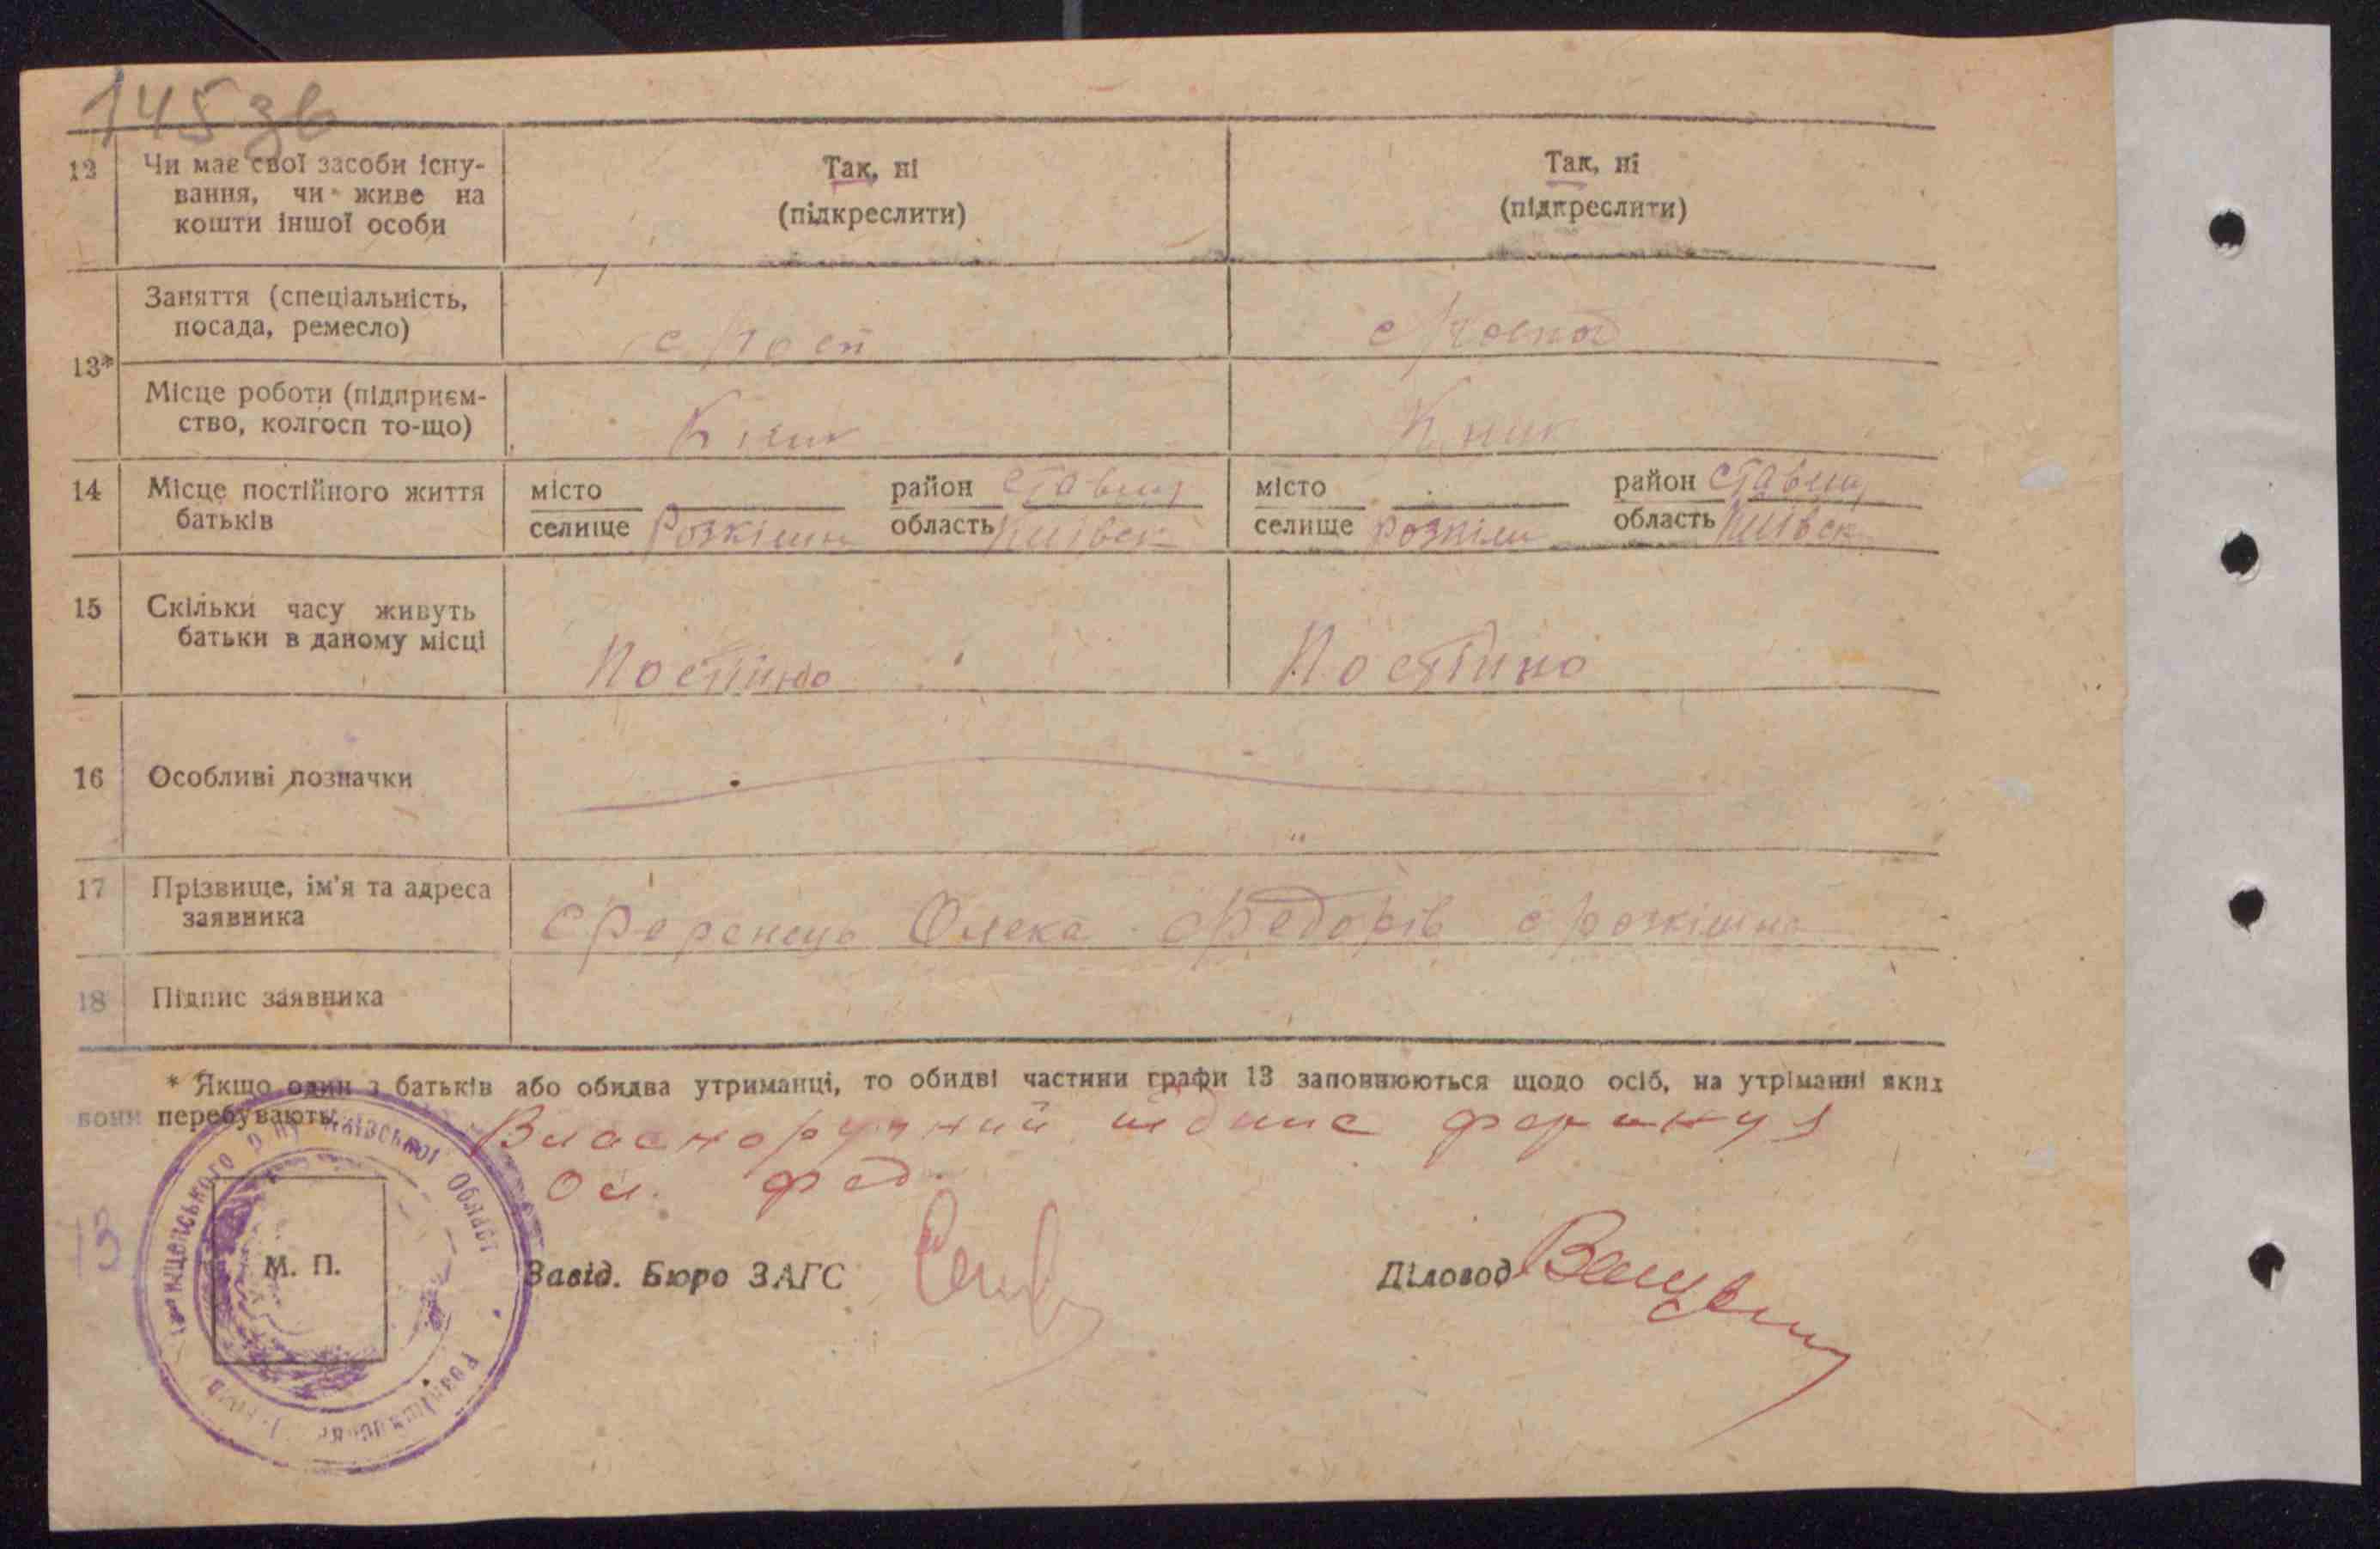 145 зв
12 Чи має свої засоби існу-
вання, чи живе на
кошти іншої особи
Так, ні
(підкреслити)
Так, ні
(підкреслити)
13* Заняття (спеціальність,
посада, ремесло)
Місце роботи (підприєм-
ство, колгосп то-що)
14 Місце постійного життя
батьків
місто район Ставищ
селище Розкішна область Київськ
місто район Ставищ
селище область Київськ
15 Скільки часу живуть
батьки в даному місці
Постійно
Постійно
16 Особливі позначки
17 Прізвище, ім'я та адреса
заявника
Олекса Федорів с Розкішна
18 Підпис заявника
* Якщо один з батьків або обидва утриманці, то обидві частини графи 13 заповнюються щодо осіб, на утріманні яких
вони перебувають.
Власноручний підпис
Ол. Фед.
13
М. П.
Завід. Бюро ЗАГС
Діловод
Київської Області